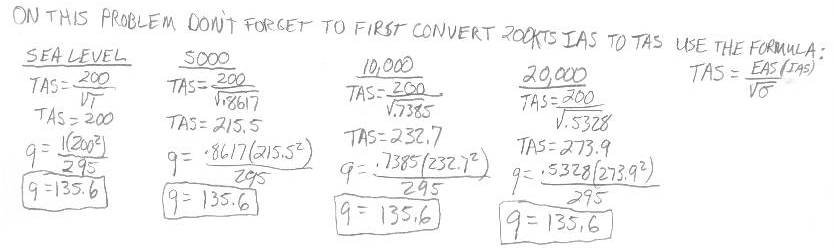 ON THIS PROBLEM DON'T FORGET TO FIRST CONVERT 200KTS IAS TO TAS USE THE FORMULA:
TAS = EAS(IAS)/√σ
SEA LEVEL
TAS = 200/√1
TAS = 200
q = 1(200²)/295
q = 135.6
5000
TAS = 200/√.8617
TAS = 215.5
q = .8617(215.5²)/295
q = 135.6
10,000
TAS = 200/√.7385
TAS = 232.7
q = .7385(232.7²)/295
q = 135.6
20,000
TAS = 200/√.5328
TAS = 273.9
q = .5328(273.9²)/295
q = 135.6